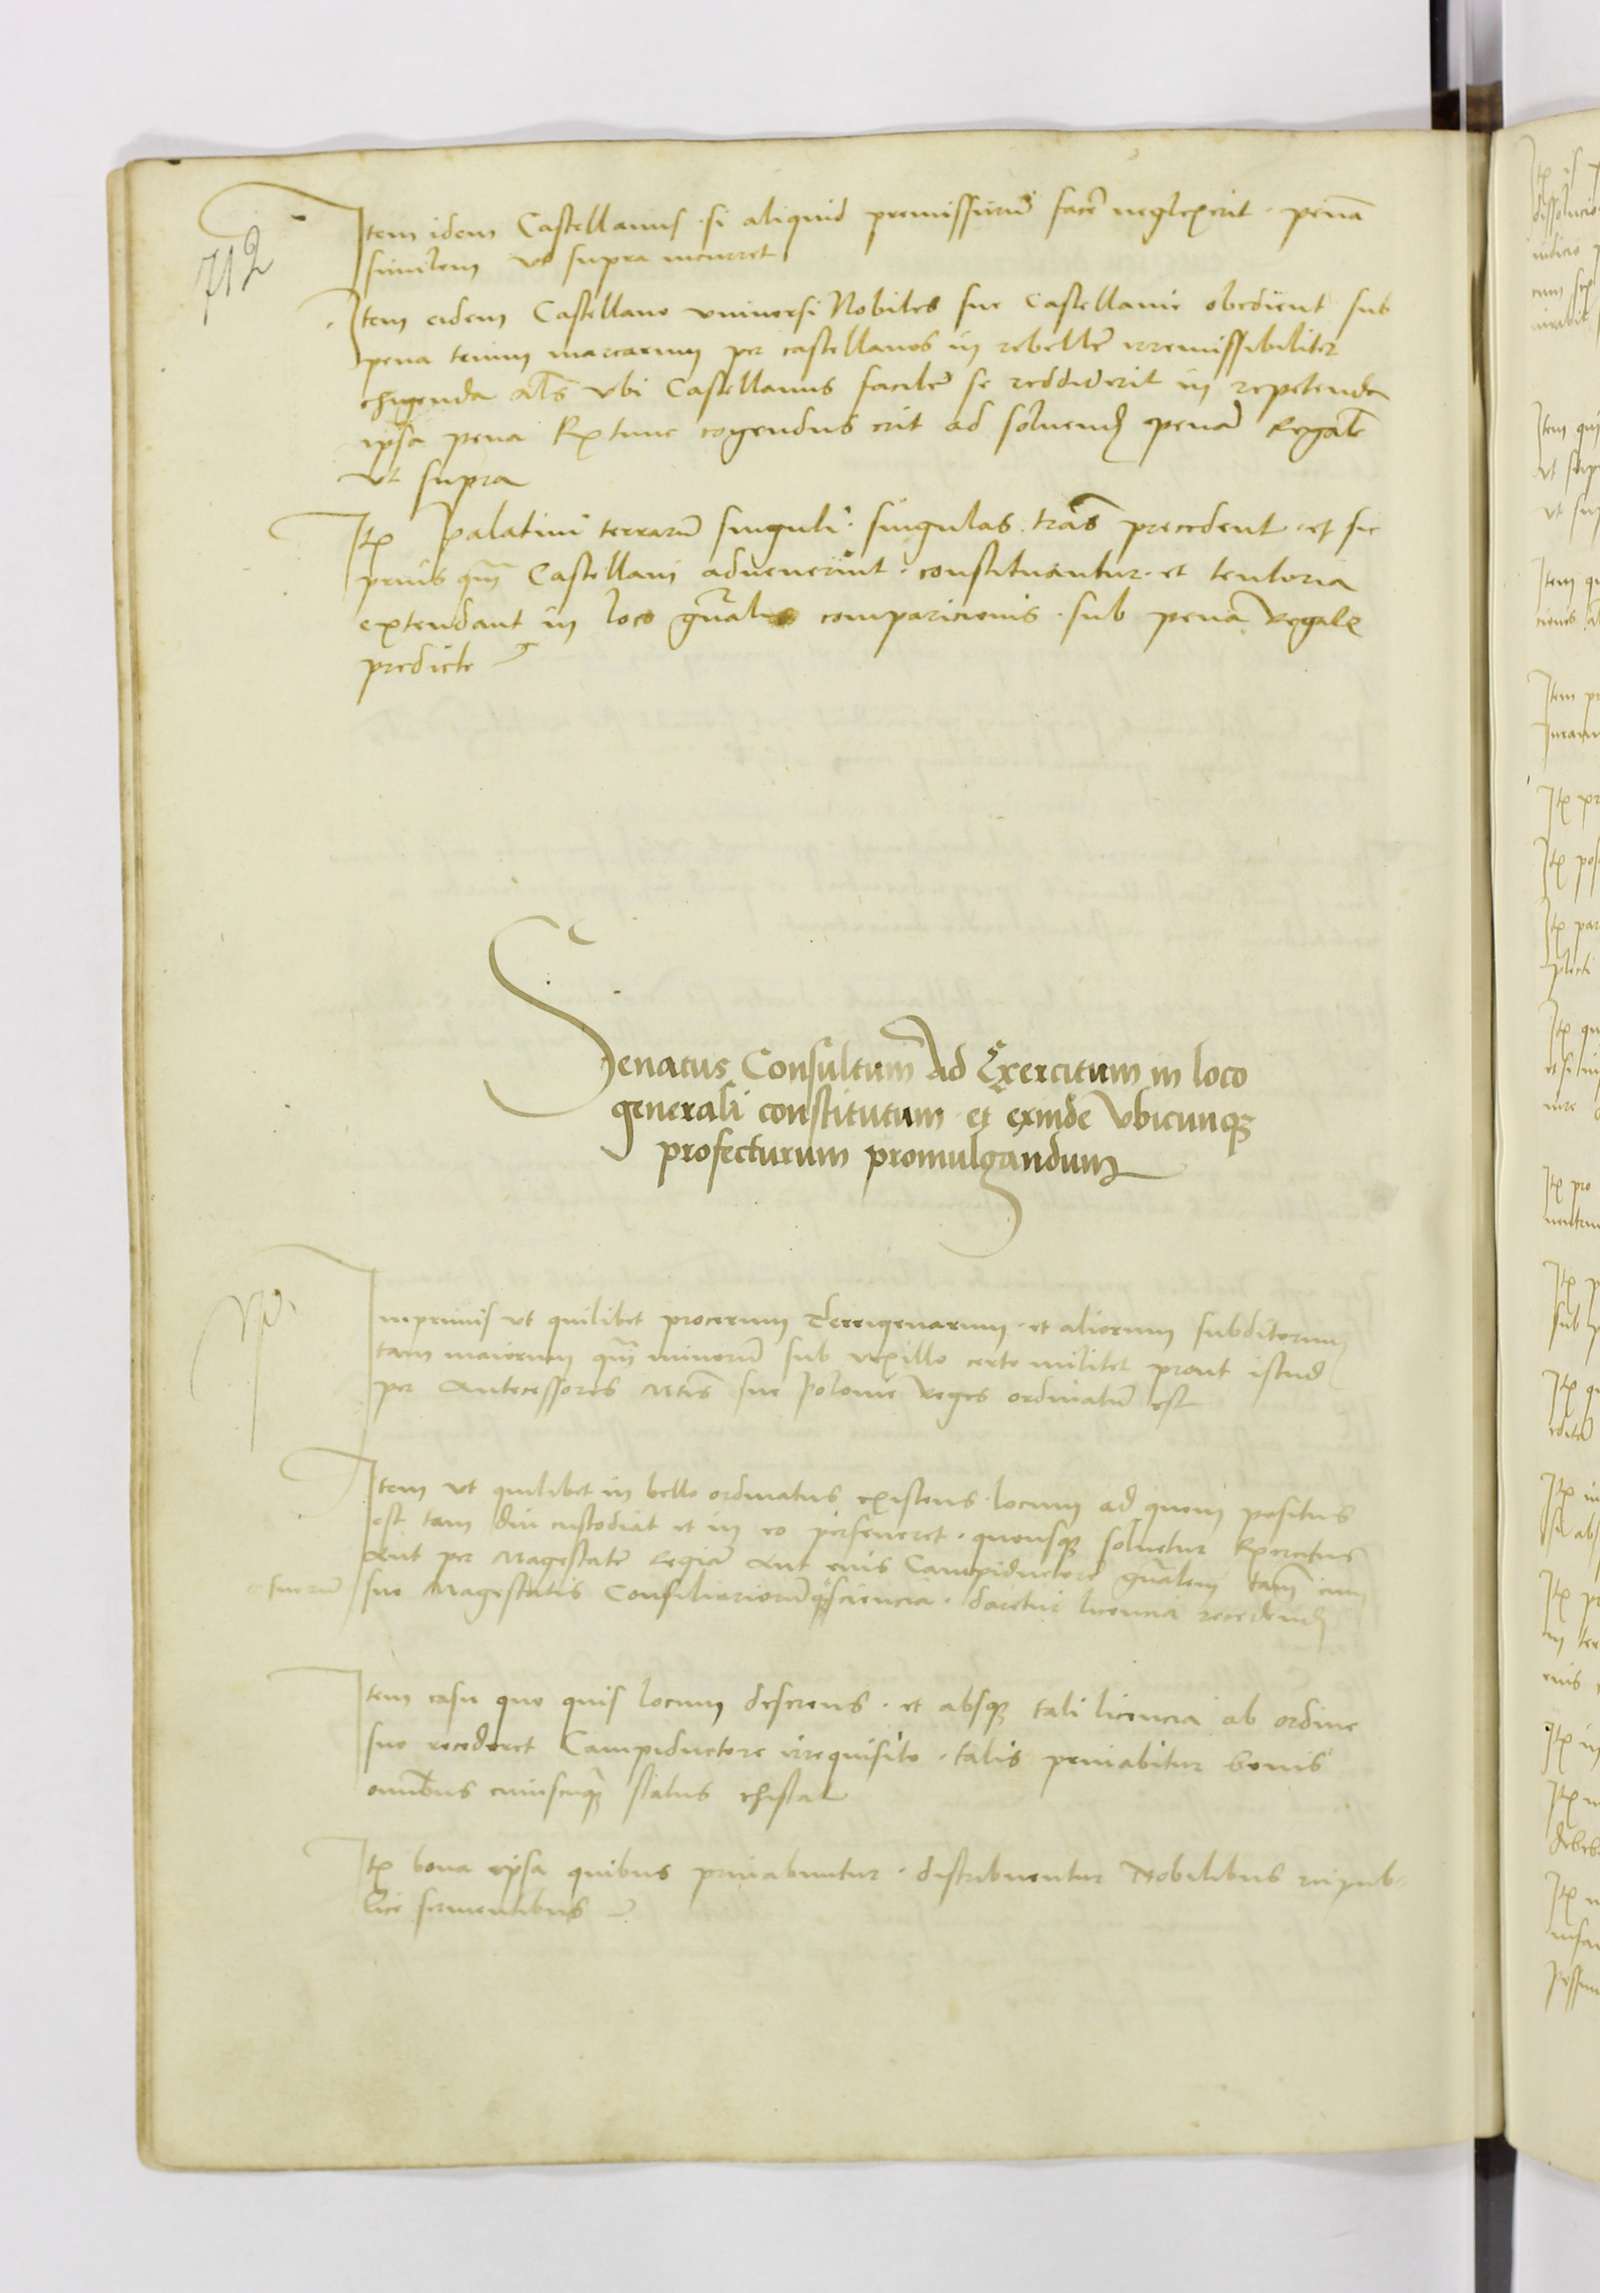 712
Item idem Castellanus · si aliquid premissorũ facẽ neglexerit · penã
similem ut supra incurret
Item eidem Castellano universi Nobiles sue Castellanie obedient sub
pena trium marcarum per castellanos in rebellẽ irremissibiliter
exigenda als ubi Castellanus facilẽ se reddiderit in repetenda
ipsa pena Extunc cogendus erit ad solvend penã Regalẽ
ut supra
Itẽ Palatini terrarũ singuli · singulas tras precedent · et sic
prius qm Castellani advenerint · constituantur · et tentoria
extendant in loco gñalis comparicionis · sub penã regale
predicte
Senatus Consultum Ad Exercitum in loco
generali constitutum et exinde Ubicunq3
profecturum promulgandum
Inprimis ut quilibet procerum Terrigenarum · et aliorum subditorum
tam maiorum qm minorũ sub vexillo certo militet prout istud
per Antecessores Mtis sue Polonie Reges ordinatũ est
Item ut quilibet in bello ordinatus existens · locum ad quem positus
est tam diu custodiat et in eo perseveret · quousq3 solvetur Exercitus
Aut per Magestatẽ Regiã Aut eius Campiductorẽ gñalem tam cum
sue Magestatis Consiliariorũ sciencia · daretur licencia recedend
Item casu quo quis locum deserens · et absq3 tali licencia ab ordine
suo recederet Campiductore irrequisito · talis privabitur bonis
omnibus cuiuscunq3 status existat
Itẽ bona ipsa quibus privabuntur · distribuentur Nobilibus reipub-
lice servientibus